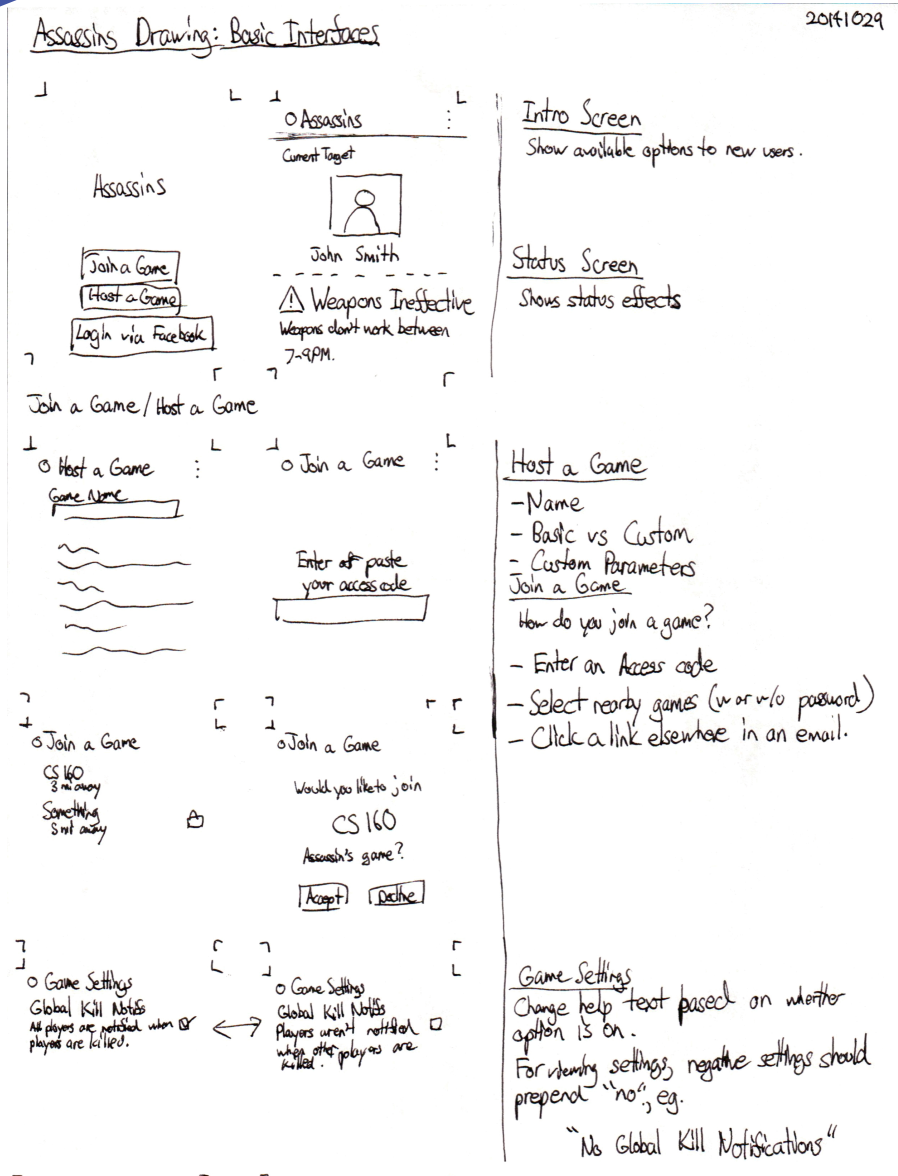 20141029
Assassins Drawing: Basic Interfaces
Assassins
Join a Game
Host a Game
Login via Facebook
Assassins
Current Target
John Smith
Weapons Ineffective
Weapons don't work between
7-9PM.
Intro Screen
Show available options to new users.
Status Screen
Shows status effects
Join a Game/Host a Game
Host a Game
Game Name
Join a Game
Enter or paste
your access code
Host a Game
- Name
- Basic vs Custom
- Custom Parameters
Join a Game
How do you join a game?
- Enter an Access code
- Select nearby games (w or w/o password)
- Click a link elsewhere in an email.
Join a Game
CS 160
3 mi away
Something
5 mi away
Join a Game
Would you like to join
CS 160
Assassin's game?
Accept
Decline
Game Settings
Global Kill Notifs
All players are notified when
players are killed.
Game Settings
Global Kill Notifs
Players aren't notified
when other players are
killed.
Game Settings
Change help text based on whether
option is on.
For viewing settings, negative settings should
prepend "no", eg.
"No Global Kill Notifications"